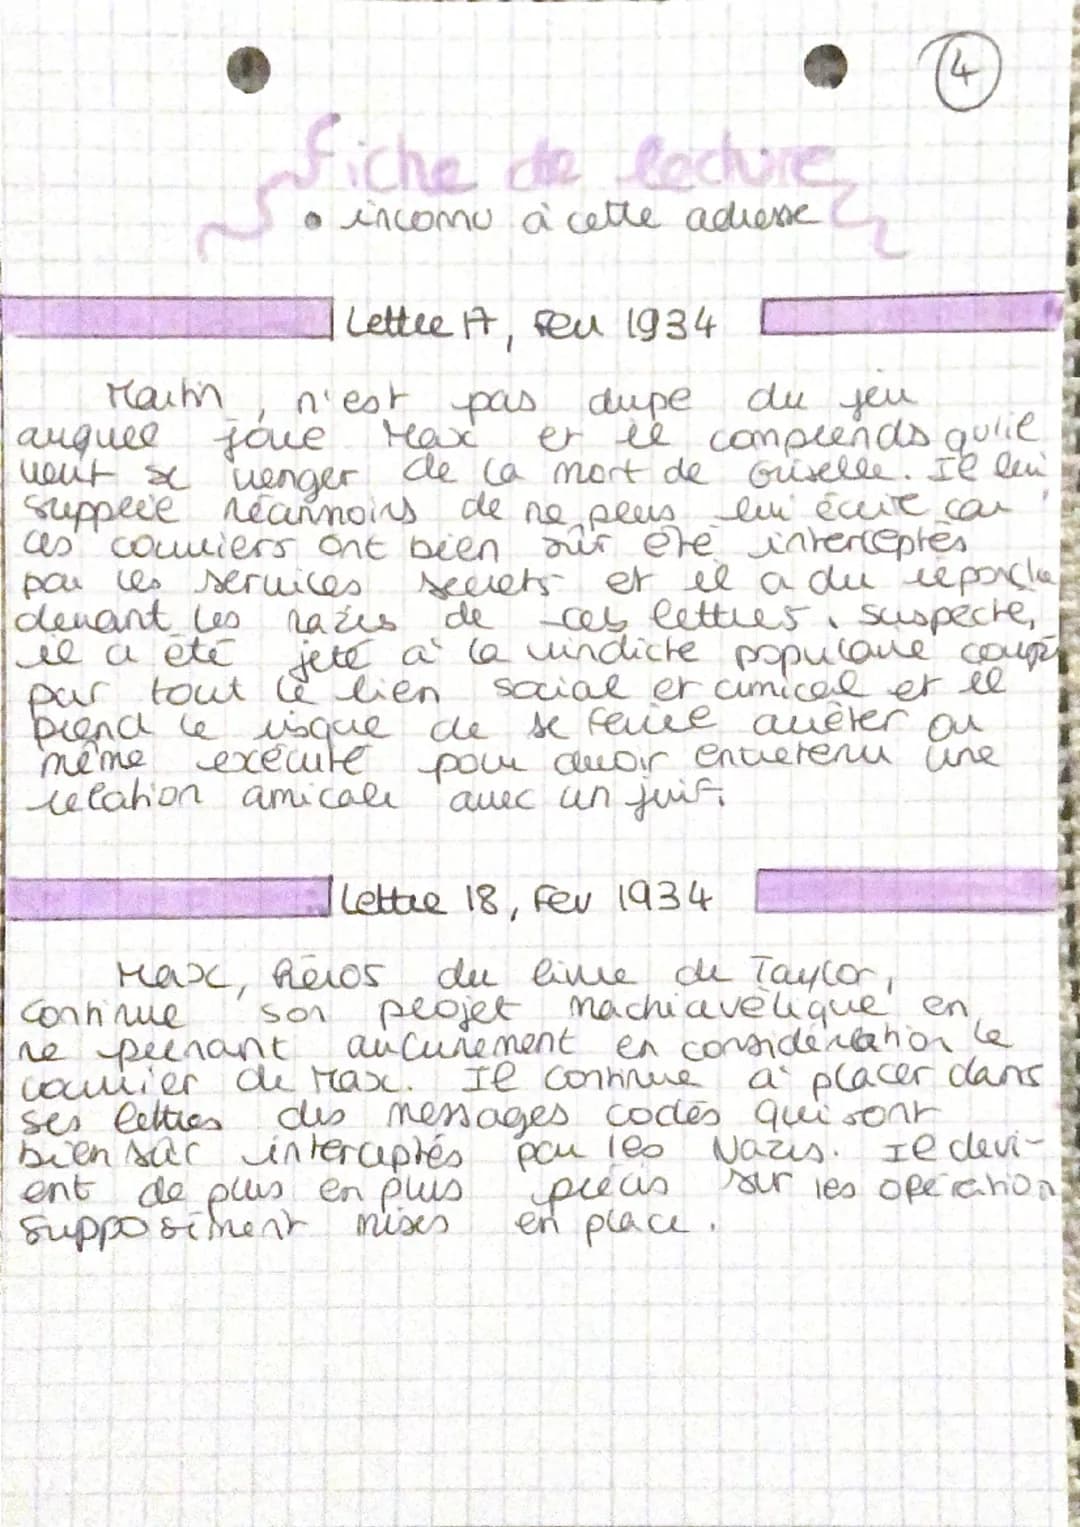 4
fiche de lecture
• inconnu à cette adresse
Lettre 17, Fev 1934
Martin, n'est pas dupe du jeu
auquel joue Max et il comprends qu'il
veut se venger de la mort de Griselle. Il lui
supplie néanmoins de ne plus lui écrire car
ces courriers ont bien sûr été interceptés
par les services secrets et il a du répondre
devant les nazis de ces lettres. Suspecté,
il a été jeté à la vindicte populaire coupé
par tout le lien social et amical et il
prend le risque de se faire arrêter ou
même exécuté pour avoir entretenu une
relation amicale avec un juif.
Lettre 18, Fev 1934
Max, héros du livre de Taylor,
continue son projet machiavélique en
ne prenant aucunement en considération le
courrier de Max. Il continue à placer dans
ses lettres des messages codés qui sont
bien sûr interceptés par les Nazis. Il devi-
ent de plus en plus précis sur les opération
supposément mises en place.